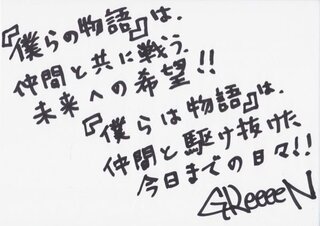 『僕らの物語』は、
仲間と共に戦う、
未来への希望!!
『僕らは物語』は、
仲間と駆け抜けた、
今日までの日々!!
GReeeeN